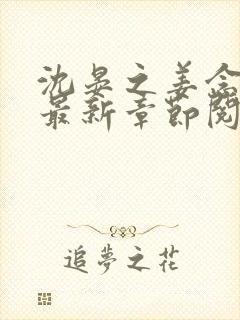 沈晏之姜念
最新章节阅
追夢之花